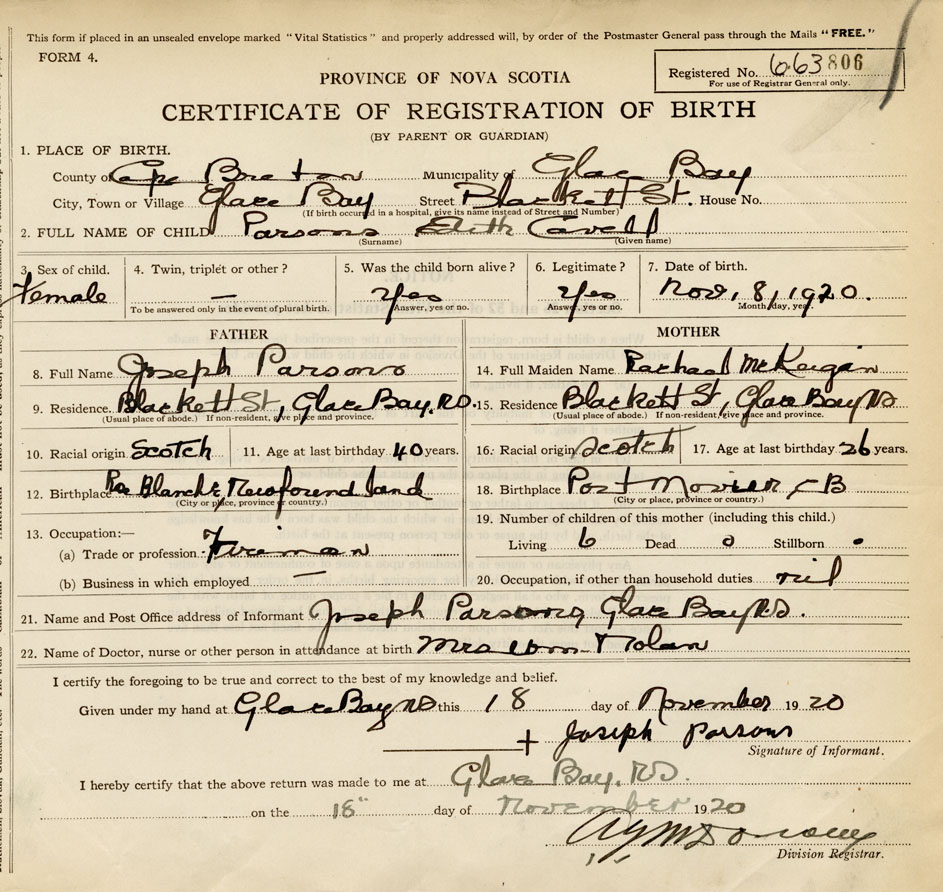 This form if placed in an unsealed envelope marked "Vital Statistics" and properly addressed will, by order of the Postmaster General pass through the Mails "FREE."
FORM 4.
Registered No. 663806
For use of Registrar General only.
PROVINCE OF NOVA SCOTIA
CERTIFICATE OF REGISTRATION OF BIRTH
(BY PARENT OR GUARDIAN)
1. PLACE OF BIRTH.
County of Cape Breton Municipality of Glace Bay
City, Town or Village Glace Bay Street Blackett St. House No.
(If birth occurred in a hospital, give its name instead of Street and Number)
2. FULL NAME OF CHILD Parsons Edith Cavell
(Surname) (Given name)
3. Sex of child. 4. Twin, triplet or other? 5. Was the child born alive? 6. Legitimate? 7. Date of birth.
Female — Yes Yes Nov, 8, 1920.
To be answered only in the event of plural birth. Answer, yes or no. Answer, yes or no. Month, day, year.
FATHER MOTHER
8. Full Name Joseph Parsons 14. Full Maiden Name Rachael McKeigan
9. Residence. Blackett St, Glace Bay. NS. 15. Residence Blackett St, Glace Bay NS
(Usual place of abode.) If non-resident, give place and province. (Usual place of abode.) If non-resident, give place and province.
10. Racial origin Scotch 11. Age at last birthday 40 years. 16. Racial origin Scotch 17. Age at last birthday 26 years.
12. Birthplace Blanche, Newfoundland 18. Birthplace Port Morien, CB
(City or place, province or country.) (City or place, province or country.)
13. Occupation:— 19. Number of children of this mother (including this child.)
(a) Trade or profession. Fireman Living 6 Dead 0 Stillborn .
(b) Business in which employed — 20. Occupation, if other than household duties nil
21. Name and Post Office address of Informant Joseph Parsons Glace Bay NS.
22. Name of Doctor, nurse or other person in attendance at birth Mrs Wm Nolan
I certify the foregoing to be true and correct to the best of my knowledge and belief.
Given under my hand at Glace Bay NS this 18 day of November 1920
+ Joseph Parsons
Signature of Informant.
I hereby certify that the above return was made to me at Glace Bay. NS.
on the 18" day of November 1920
Division Registrar.